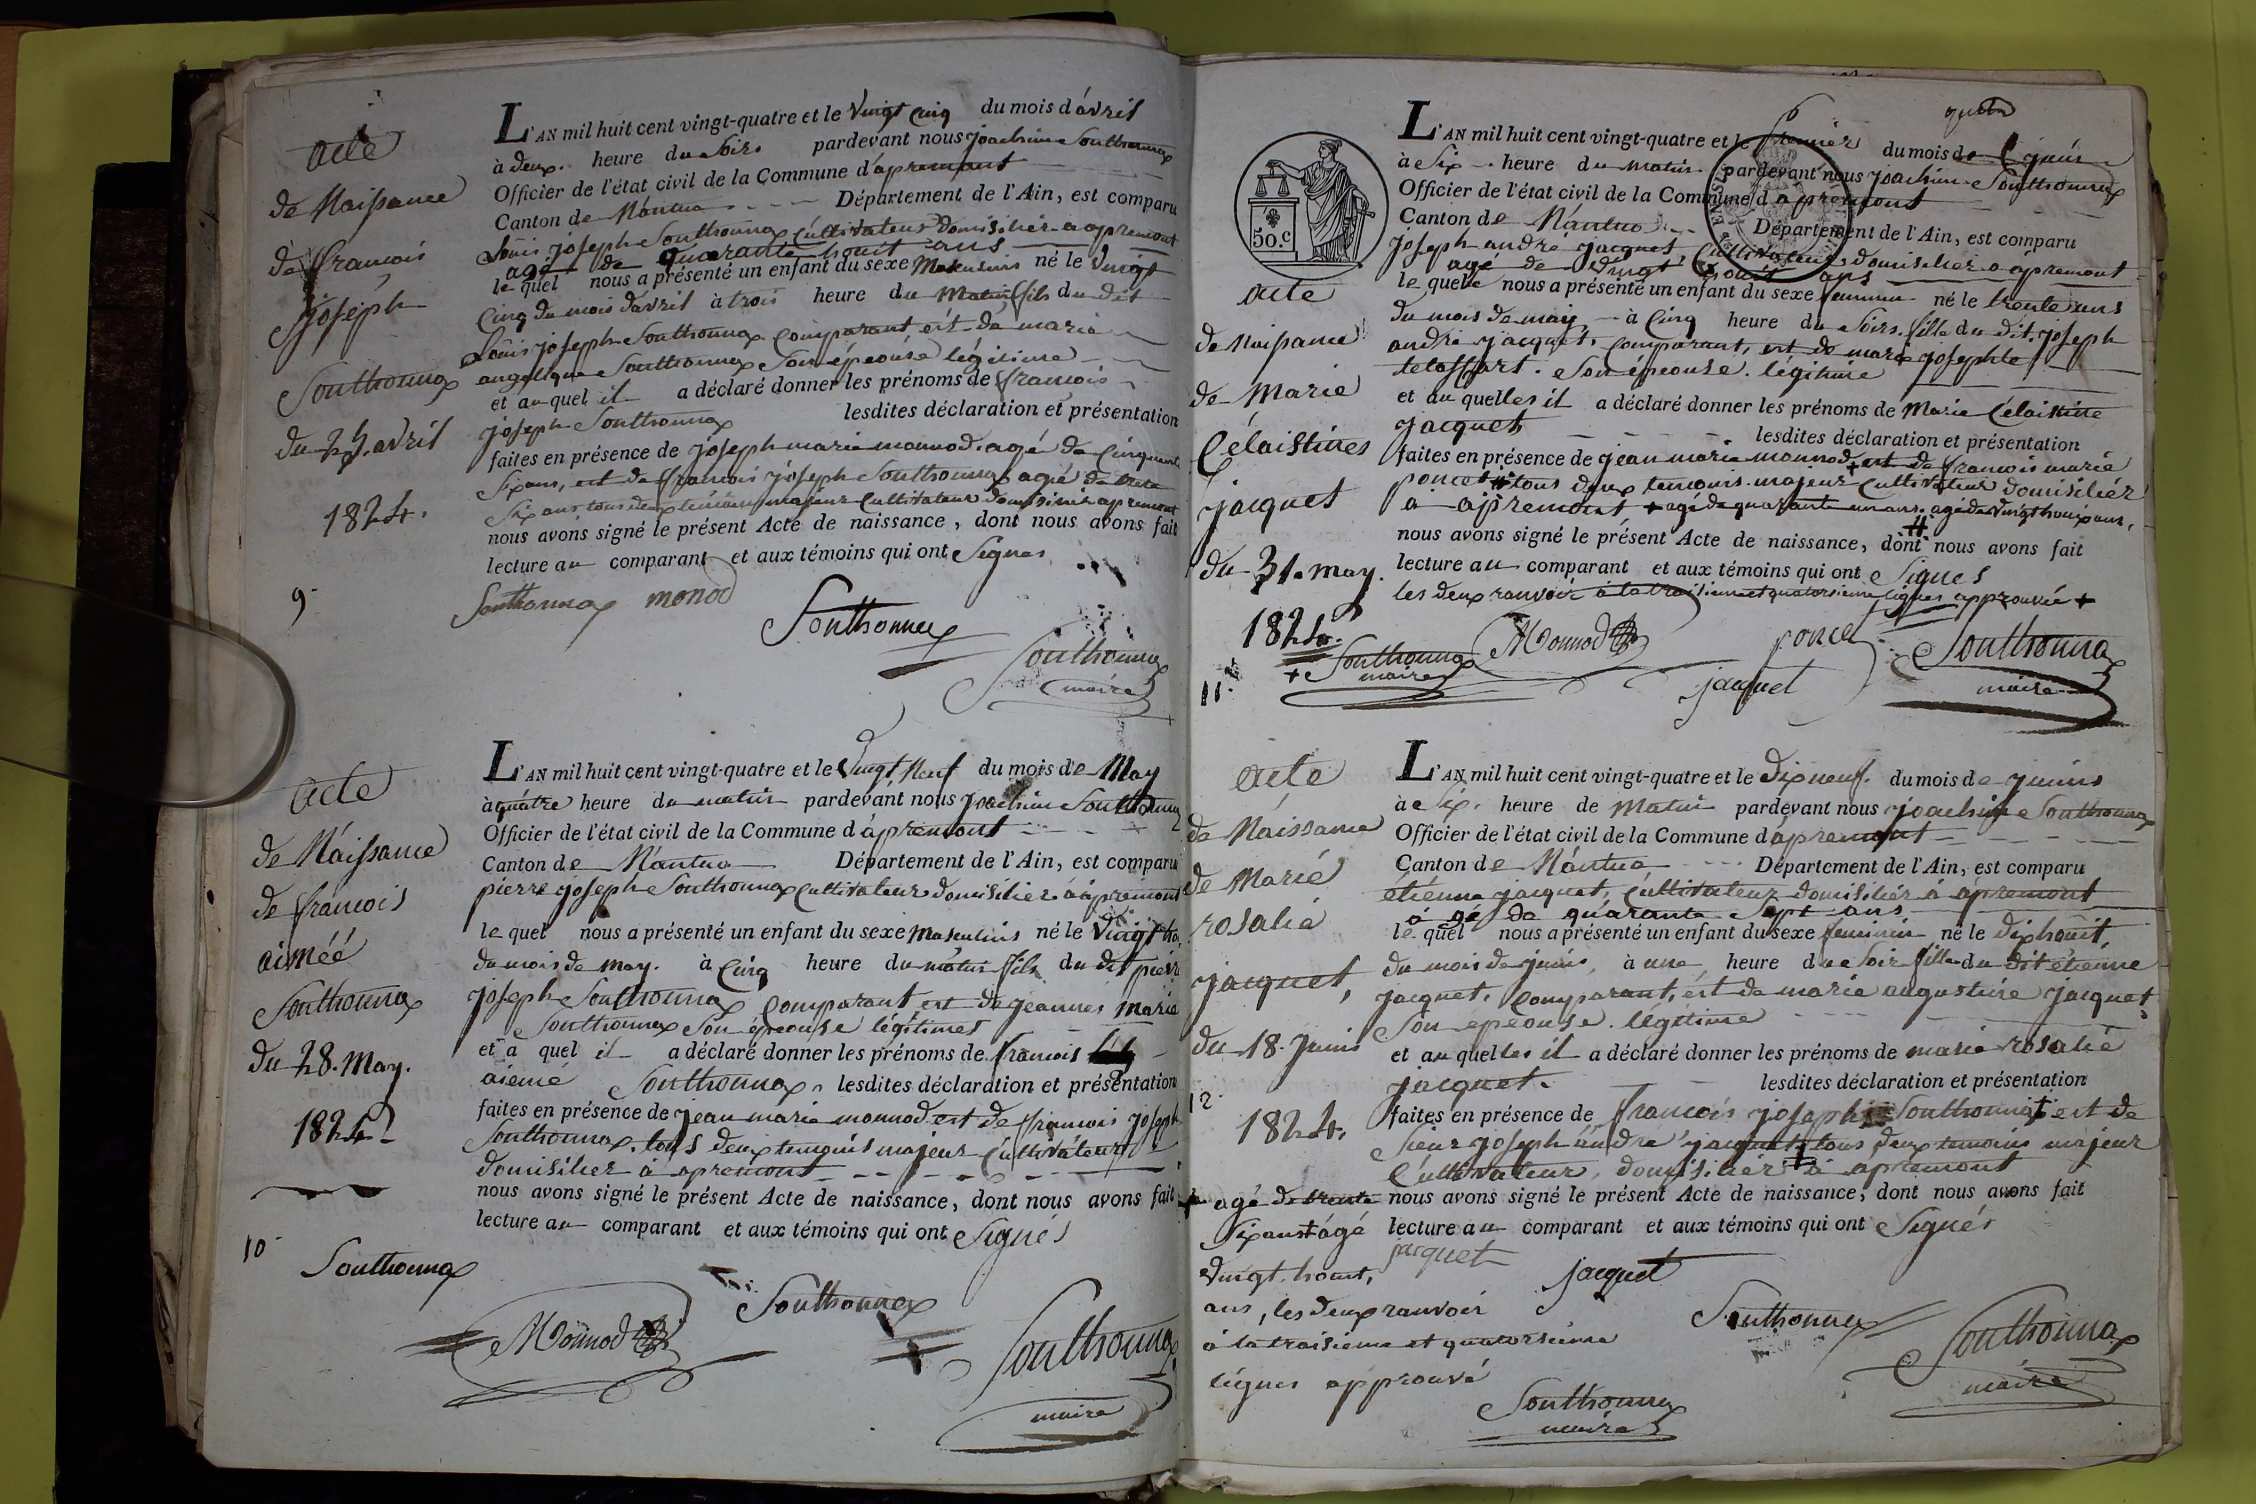 acte
de Naissance
de francois
joseph
Southonnax
du 25 avril
1824.
9.
L'AN mil huit cent vingt-quatre et le vingt cinq du mois d'avril
à deux heure du Soirs pardevant nous joachim Southonnax
Officier de l'état civil de la Commune d'apremont
Canton de Nantua Département de l'Ain, est comparu
Louis joseph Southonnax Cultivateur domisilier a apremont
agé de quarante houit ans
le quel nous a présenté un enfant du sexe Masculins né le vingt
Cinq du mois davril à trois heure du Matin fils du dit
Louis joseph Southonnax Comparant et de marie
angelique Southonnax Son épeouse légitime
et au quel il a déclaré donner les prénoms de francois
joseph Southonnax lesdites déclaration et présentation
faites en présence de joseph marie monnod agé de Cinquante
Six ans, est de francois joseph Southonnax agé de trente
Six ans tous deux temoins majeur Cultivateur domisilié apremont
nous avons signé le présent Acte de naissance, dont nous avons fait
lecture au comparant et aux témoins qui ont Signes
Southonnax monod
Southonnax
Southonnax
maire
acte
de Naissance
de francois
aiméé
Southonnax
du 28. May.
1824
10
L'AN mil huit cent vingt-quatre et le Vingt Neuf du mois de May
à quatre heure du matin pardevant nous joachim Southonnax
Officier de l'état civil de la Commune d'apremont
Canton de Nantua Département de l'Ain, est comparu
pierre joseph Southonnax Cultivateur domisilier à apremont
le quel nous a présenté un enfant du sexe Masculins né le Vingt
du mois de may. à Cinq heure du matin fils du dit pierre
joseph Southonnax Comparant est de jeannes Marie
Southonnax Son épeouse légitimes
et a quel il a déclaré donner les prénoms de francois
aiemé Southonnax lesdites déclaration et présentation
faites en présence de jean marie monnod est de francois joseph
Southonnax tous deux temouis majeur Cultivateur
domisilier à apremont
nous avons signé le présent Acte de naissance, dont nous avons fait
lecture au comparant et aux témoins qui ont Signés
Southonnax
Monnod
Southonnax
Southonnax
maire
50.c
acte
de Naissance
de Marie
Célaistines
jacquet
du 31. may.
1824.
11.
L'AN mil huit cent vingt-quatre et le premier du mois de juin
à Six heure du matin pardevant nous joachim Southonnax
Officier de l'état civil de la Commune d'apremont
Canton de Nantua Département de l'Ain, est comparu
joseph andre jacquet Cultivateur domisilier a apremont
agé de vingt houit ans
le quele nous a présenté un enfant du sexe feminin né le trente uns
du mois de may à Cinq heure du Soirs fille du dit joseph
andré jacquet, Comparant, est de marie josephte
Son épeouse légitime
et au quelles il a déclaré donner les prénoms de Marie Célaistine
jacquet lesdites déclaration et présentation
faites en présence de jean marie monnod + est de francois marie
poncet # tous deux temouis majeur Cultivateur domisiliér
a apremont + agé de quarante un ans. agé de vingt houit ans,
nous avons signé le présent Acte de naissance, dont nous avons fait
lecture au comparant et aux témoins qui ont Signes
les deux ranvoir à la traisieme et quatorsieme lignes approuvée +
+ Southonnax
maire
Monnod
poncet
jacquet
Southonnax
maire
acte
de Naissance
de Marié
rosalié
jacquet,
du 18. Juins
12.
1824.
+ agé de trente
Six ans + âgé
vingt houit,
ans, les deux ranvoir
à la traisieme et quatorsieme
lignes approuvé
L'AN mil huit cent vingt-quatre et le Dix neuf. du mois de juins
à Six. heure de Matin pardevant nous joachim Southonnax
Officier de l'état civil de la Commune d'apremont
Canton de Nantua Département de l'Ain, est comparu
étienne jacquet, Cultivateur domisiliér à apremont
agé de quarante Sept ans
le quel nous a présenté un enfant du sexe féminin né le dix houit,
du mois de juins, à une heure du Soir fille du dit étienne
jacquet, Comparant, ést de marie augustine jacquet
Son epeouse. légitime
et au quelles il a déclaré donner les prénoms de marie rosalié
jacquet. lesdites déclaration et présentation
faites en présence de francois joseph Southonnax + est de
Sieur joseph andre jacquet + tous deux temoins majeur
Cultivateur, domisiliér à apremont
nous avons signé le présent Acte de naissance, dont nous avons fait
lecture au comparant et aux témoins qui ont Signés
jacquet
jacquet
Southonnax
Southonnax
maire
Southonnax
maire